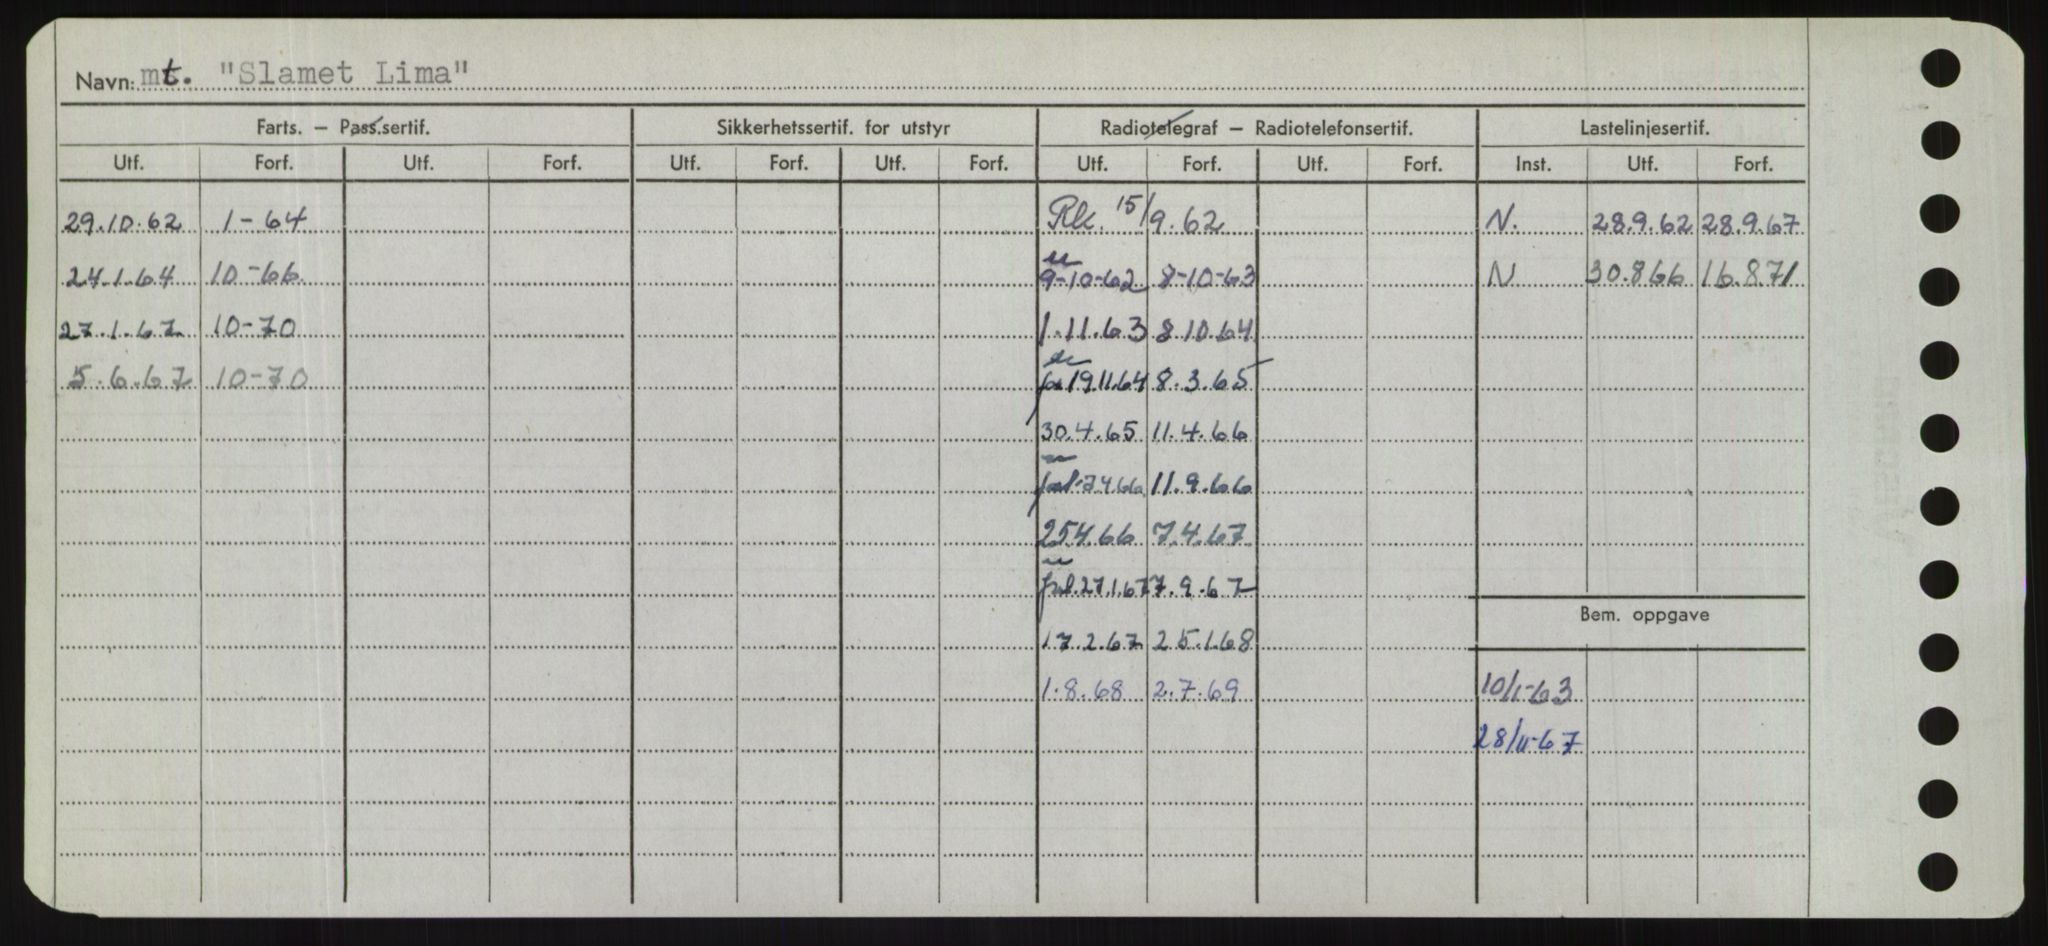 Navn: mt. "Slamet Lima"
Farts. – Pass.sertif. Sikkerhetssertif. for utstyr Radiotelegraf – Radiotelefonsertif. Lastelinjesertif.
Utf. Forf. Utf. Forf. Utf. Forf. Utf. Forf. Utf. Forf. Utf. Forf. Inst. Utf. Forf.
29.10.62 1-64 Rk. 15/9.62 N. 28.9.62 28.9.67
24.1.64 10-66 9-10-62 8-10-63 N 30.866 16.8.71
27.1.67 10-70 1.11.63 8.10.64
5.6.67 10-70 19.11.64 8.3.65
30.4.65 11.4.66
7.4.66 11.9.66
25.4.66 7.4.67
27.1.67 7.9.67
Bem. oppgave
17.2.67 25.1.68
1.8.68 2.7.69 10/1-63
28/11-67